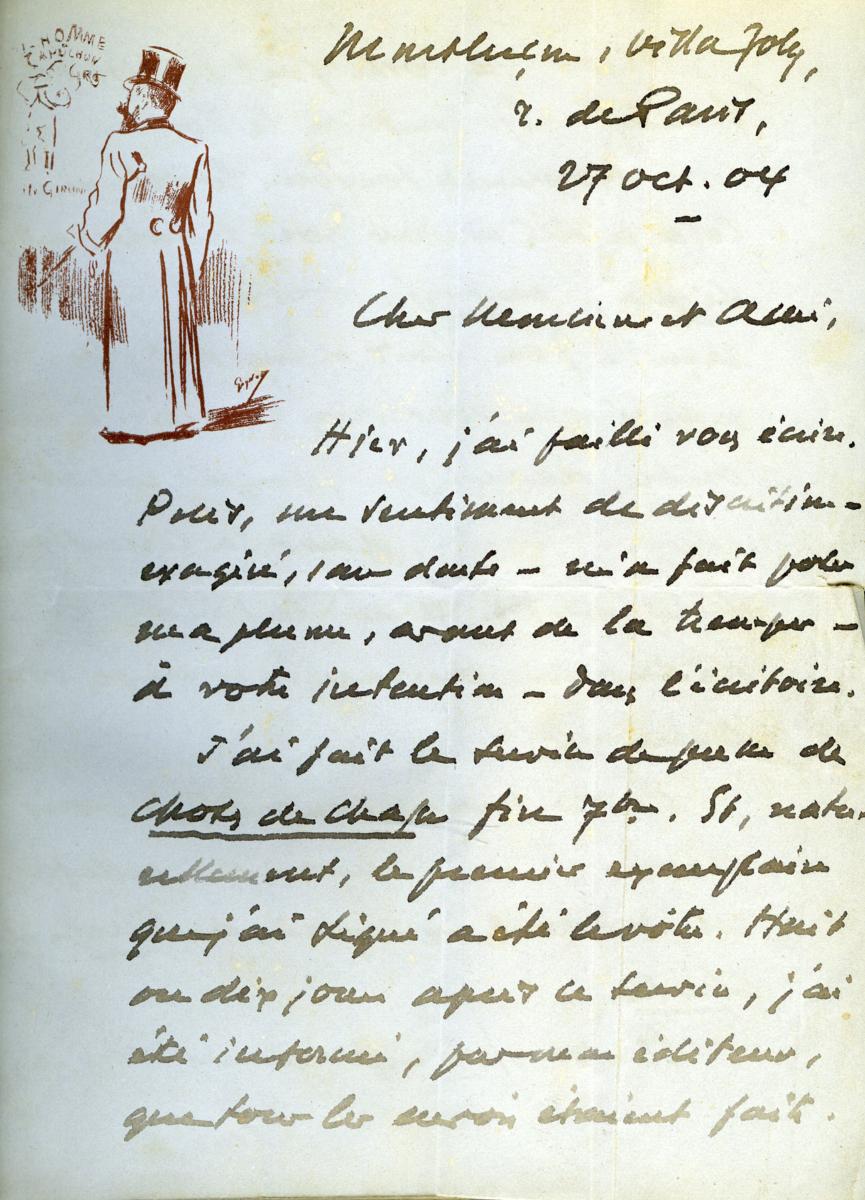 L'HOMME
CAPUCHON
GRIS
IN GIRUM
Montluçon, villa Joly,
r. de Paris,
27 oct. 04
Cher Monsieur et Ami,
Hier, j'ai failli vous écrire.
Puis, un sentiment de discrétion –
exagéré, sans doute – m'a fait poser
ma plume, avant de la tremper –
à votre intention – dans l'écritoire.
J'ai fait le service de presse de
Choses de Chasse fin 7bre. Et, natu-
rellement, le premier exemplaire
que j'ai signé a été le vôtre. Huit
ou dix jours après ce service, j'ai
été informé, par mon éditeur,
que tous les envois étaient faits.